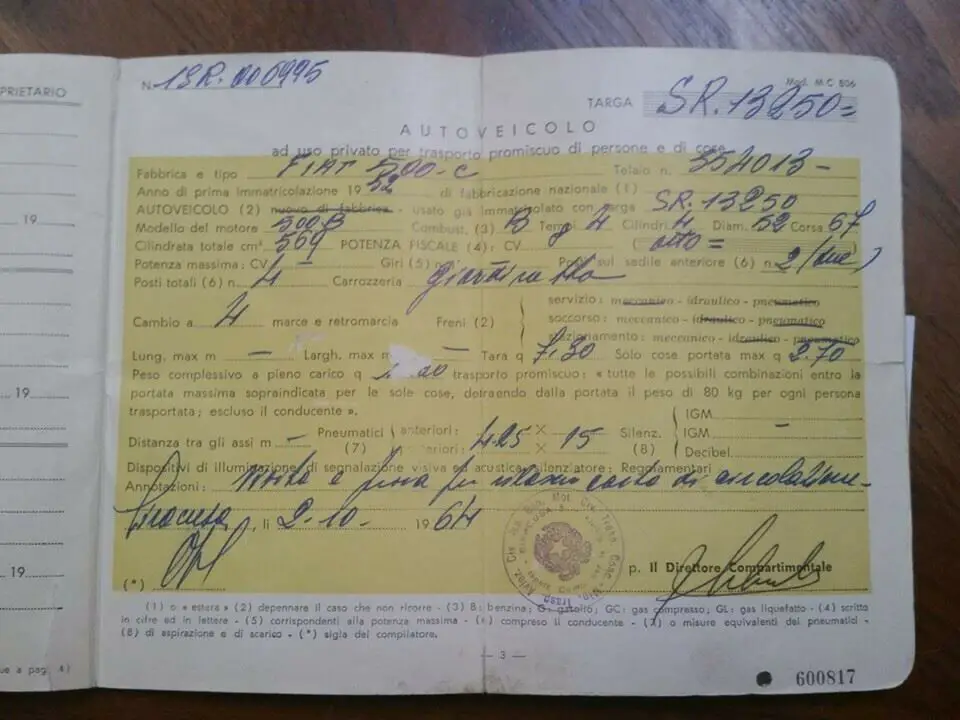 PRIETARIO
19
19
19
ue a pag. 4)
N. 1SR.000995
Mod. M.C. 806
TARGA SR.13250=
AUTOVEICOLO
ad uso privato per trasporto promiscuo di persone e di cose
Fabbrica e tipo FIAT 500-C Telaio n. 354013-
Anno di prima immatricolazione 19 52 di fabbricazione nazionale (1)
AUTOVEICOLO (2) nuovo di fabbrica - usato già immatricolato con targa SR.13250
Modello del motore 500B Combust. (3) B Tempi 4 Cilindri 4 Diam. 52 Corsa 67
Cilindrata totale cm³. 569 POTENZA FISCALE (4): CV 8 (otto=)
Potenza massima: CV — Giri (5) Posti sul sedile anteriore (6) n. 2 (due)
Posti totali (6) n. 4 Carrozzeria giardinetta
Cambio a 4 marce e retromarcia Freni (2)
servizio: meccanico - idraulico - pneumatico
soccorso: meccanico - idraulico - pneumatico
stazionamento: meccanico - idraulico - pneumatico
Lung. max m — Largh. max m — Tara q 7.30 Solo cose portata max q 2.70
Peso complessivo a pieno carico q trasporto promiscuo: « tutte le possibili combinazioni entro la
portata massima sopraindicata per le sole cose, detraendo dalla portata il peso di 80 kg per ogni persona
trasportata; escluso il conducente ».
Distanza tra gli assi m — Pneumatici (7) anteriori: 425 × 15 Silenz. (8) IGM
IGM —
Decibel
Dispositivi di illuminazione di segnalazione visiva ed acustica silenziatore: Regolamentari
Annotazioni: carta di circolazione-
Siracusa, li 2-10- 1964
p. Il Direttore Compartimentale
(*)
(1) o « estera » (2) depennare il caso che non ricorre - (3) B: benzina; G: gasolio; GC: gas compresso; GL: gas liquefatto - (4) scritto
in cifre ed in lettere - (5) corrispondenti alla potenza massima - (6) compreso il conducente - (7) o misure equivalenti del pneumatici -
(8) di aspirazione e di scarico - (*) sigla del compilatore.
— 3 —
600817